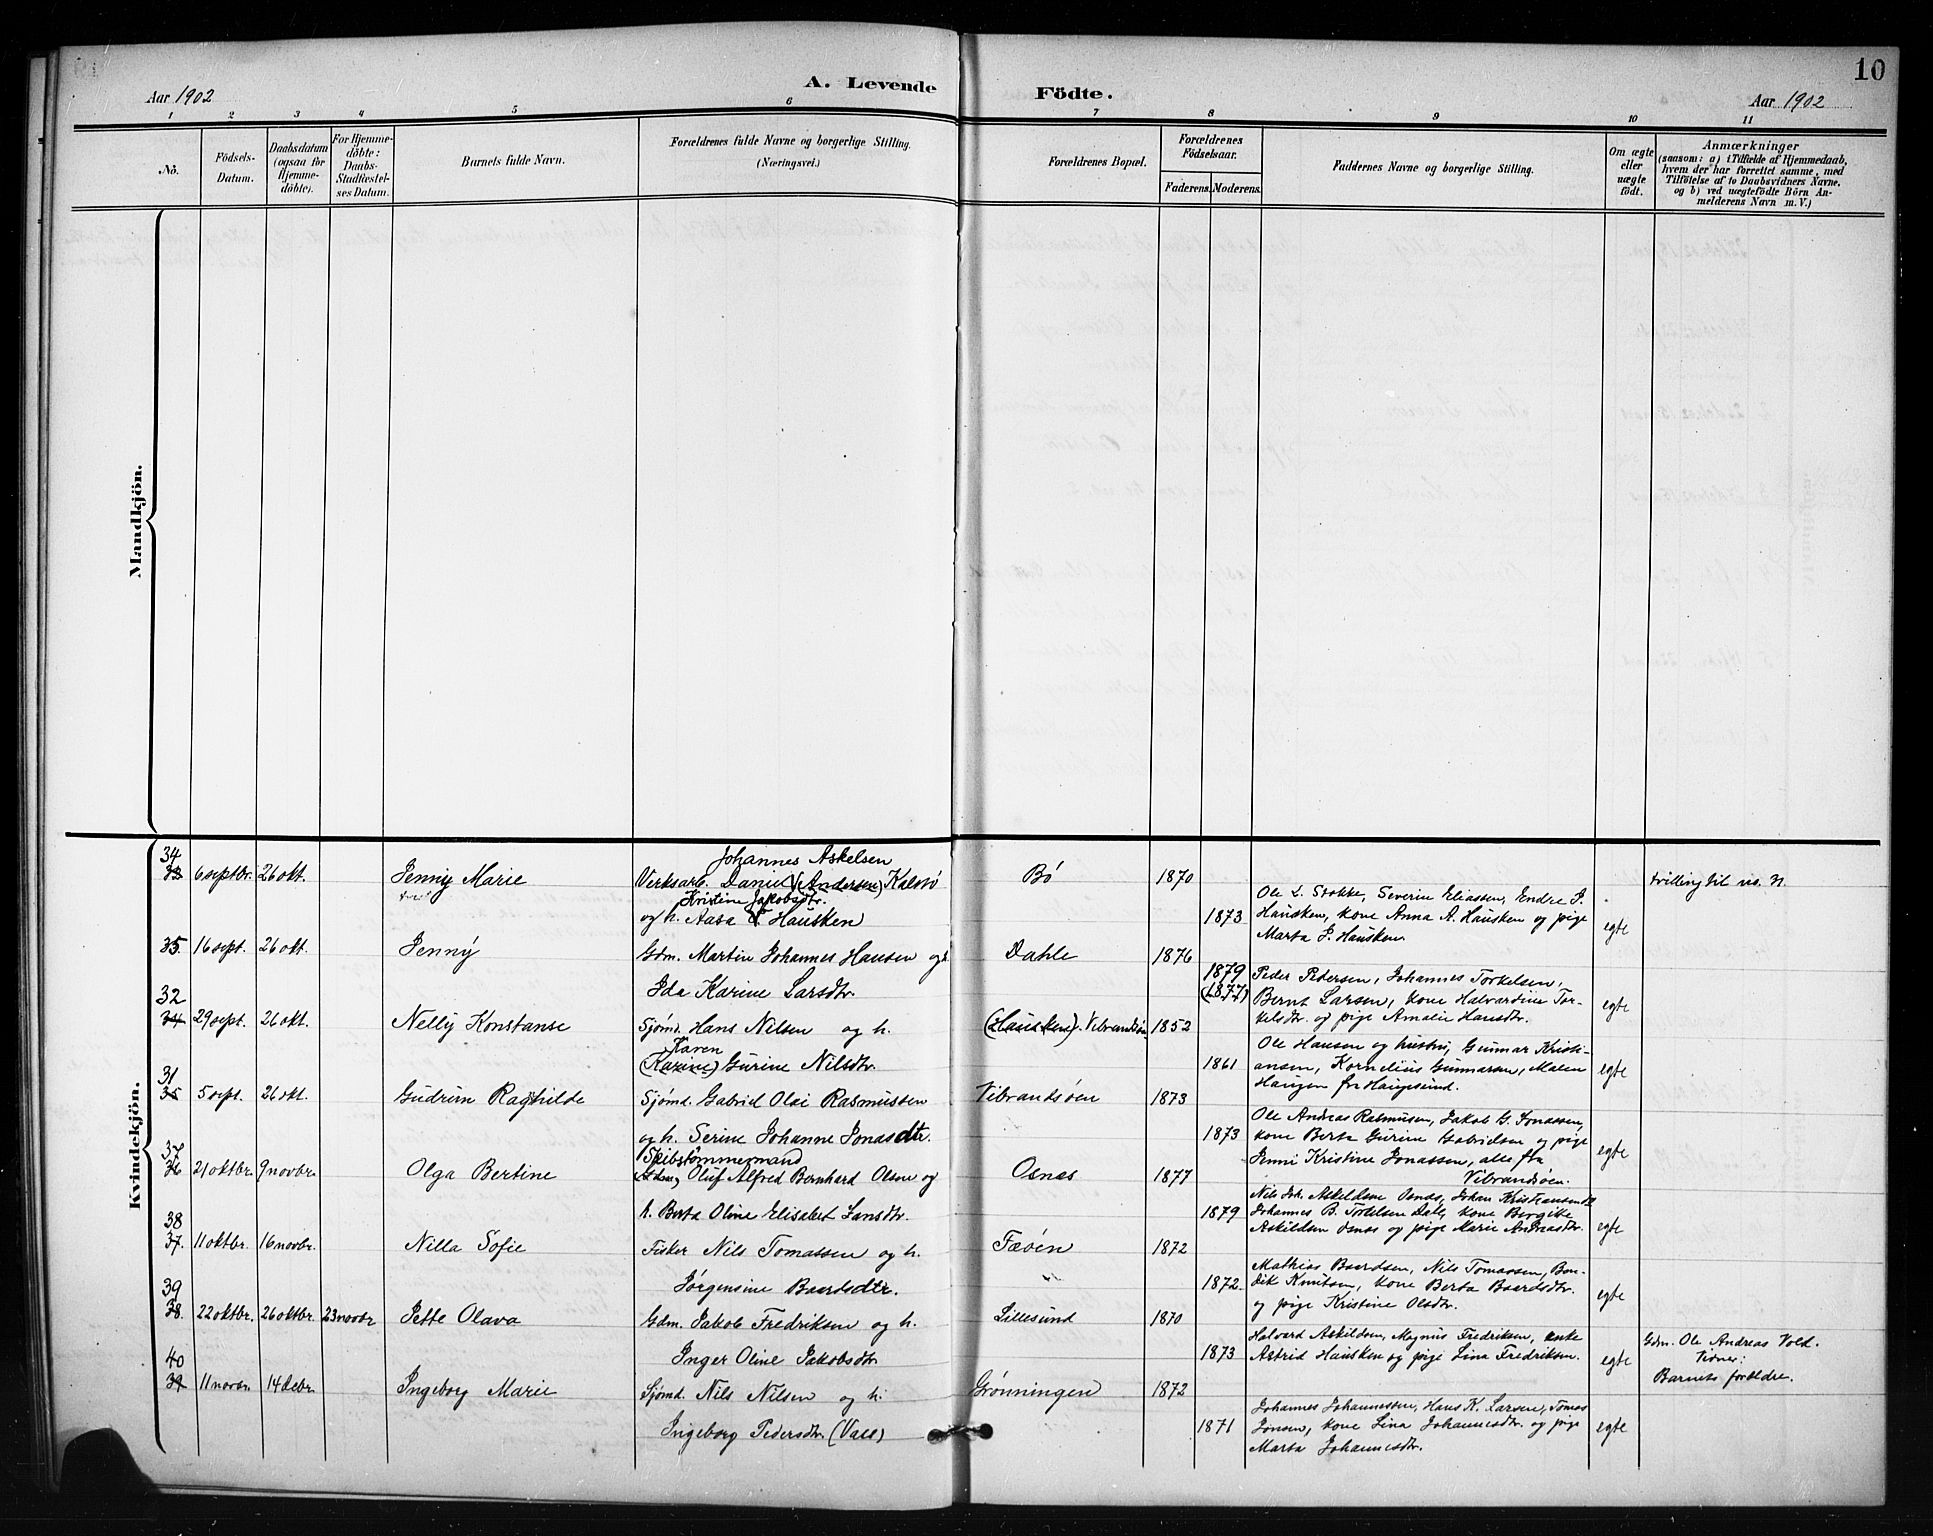 10
Aar 1902
A. Levende Födte.
Aar 1902
1 2 3 4 5 6 7 8 9 10 11
No.
Födsels-
Datum.
Daabsdatum
(ogsaa for
Hjemme-
döbte).
For Hjemme-
döbte:
Daabs-
Stadfæstel-
ses Datum.
Barnets fulde Navn.
Forældrenes fulde Navne og borgerlige Stilling.
(Næringsvei.)
Forældrenes Bopæl.
Forældrenes
Födselsaar.
Faderens. Moderens.
Faddernes Navne og borgerlige Stilling.
Om ægte
eller
uægte
födt.
Anmærkninger
(saasom: a) i Tilfælde af Hjemmedaab,
hvem der har forrettet samme, med
Tilföielse af to Daabsvidners Navne,
og b) ved uægtefödte Börn An-
melderens Navn m. V.)
Mandkjön.
Kvindekjön.
34
33 6 septbr. 26 okt. Jenny Marie
Johannes Askelsen
Verksarb. Daniel (Andersen) Kalstö
Kristine Jakobsdtr.
og h. Aasa Hausken
Bö 1870
1873
Ole L. Stokke, Severin Eliassen, Endre J.
Hausken, kone Anna A. Hausken og pige
Marta J. Hausken.
egte
tvilling til no. 21.
35. 16 sept. 26 okt. Jenny
Gdm. Martin Johannes Hansen og h.
Ida Karine Larsdtr.
Dahle 1876
1879
(1877)
Peder Pedersen, Johannes Torkelsen,
Bernt Larsen, kone Halvardine Tor-
kelsdtr. og pige Amalie Hansdtr.
egte
32
34 29 sept. 26 okt. Nelly Konstanse
Sjömd. Hans Nilsen og h.
Karen
(Karine) Gurine Nilsdtr.
(Hausken). Vibrandsöen 1852
1861
Ole Hansen og hustru, Gunnar Kristi-
ansen, Kornelius Gunnarsen, Malen
Haugen fra Haugesund.
egte
31
35 5 sept. 26 okt. Gudrun Raghilde
Sjömd. Gabriel Olai Rasmussen
og h. Serine Johanne Jonasdtr.
Vibrandsöen 1873
1873
Ole Andreas Rasmusen, Jakob G. Jonassen,
kone Berta Gurine Gabrielsen og pige
Jenni Kristine Jonassen, alle fra
Vibrandsöen.
egte
37
36 21 oktbr. 9 novbr. Olga Bertine
Skibstömmermand
Oluf Alfred Bernhard Olsen og
h. Berta Oline Elisabet Larsdtr.
Osnas 1877
1879
Nils Joh. Askildsen Osnas, Johan Kristiansen
Johannes B. Torkelsen Dale, kone Bergike
Askildsen Osnas og pige Marie Andreasdtr.
egte
38
37. 11 oktbr. 16 novbr. Nilla Sofie
Fisker Nils Tomassen og h.
Jörgensine Baardsdtr.
Fæöen 1872
" 1872
Mathias Baardsen, Nils Tomassen, Ben-
dik Knutsen, kone Berta Baardsdtr.
og pige Kristine Olsdtr.
egte
39
38. 22 oktbr. 26 oktbr. 23 novbr Jette Olava
Gdm. Jakob Fredriksen og h.
Inger Oline Jakobsdtr
Lillesund 1870
1873
Halvard Askildsen, Magnus Fredriksen, enke
Astrid Hausken og pige Lina Fredriksen.
egte
Gdm. Ole Andreas Vold.
Vidner:
Barnets forældre.
40
39 11 novbr. 14 debr. Ingeborg Marie
Sjömd. Nils Nilsen og h.
Ingeborg Pedersdtr. (Vall)
Grönningen 1872
1871
Johannes Johannessen, Hans K. Larsen, Tomas
Jonsen, kone Lina Johannesdtr. og pige
Marta Johannesdtr.
egte